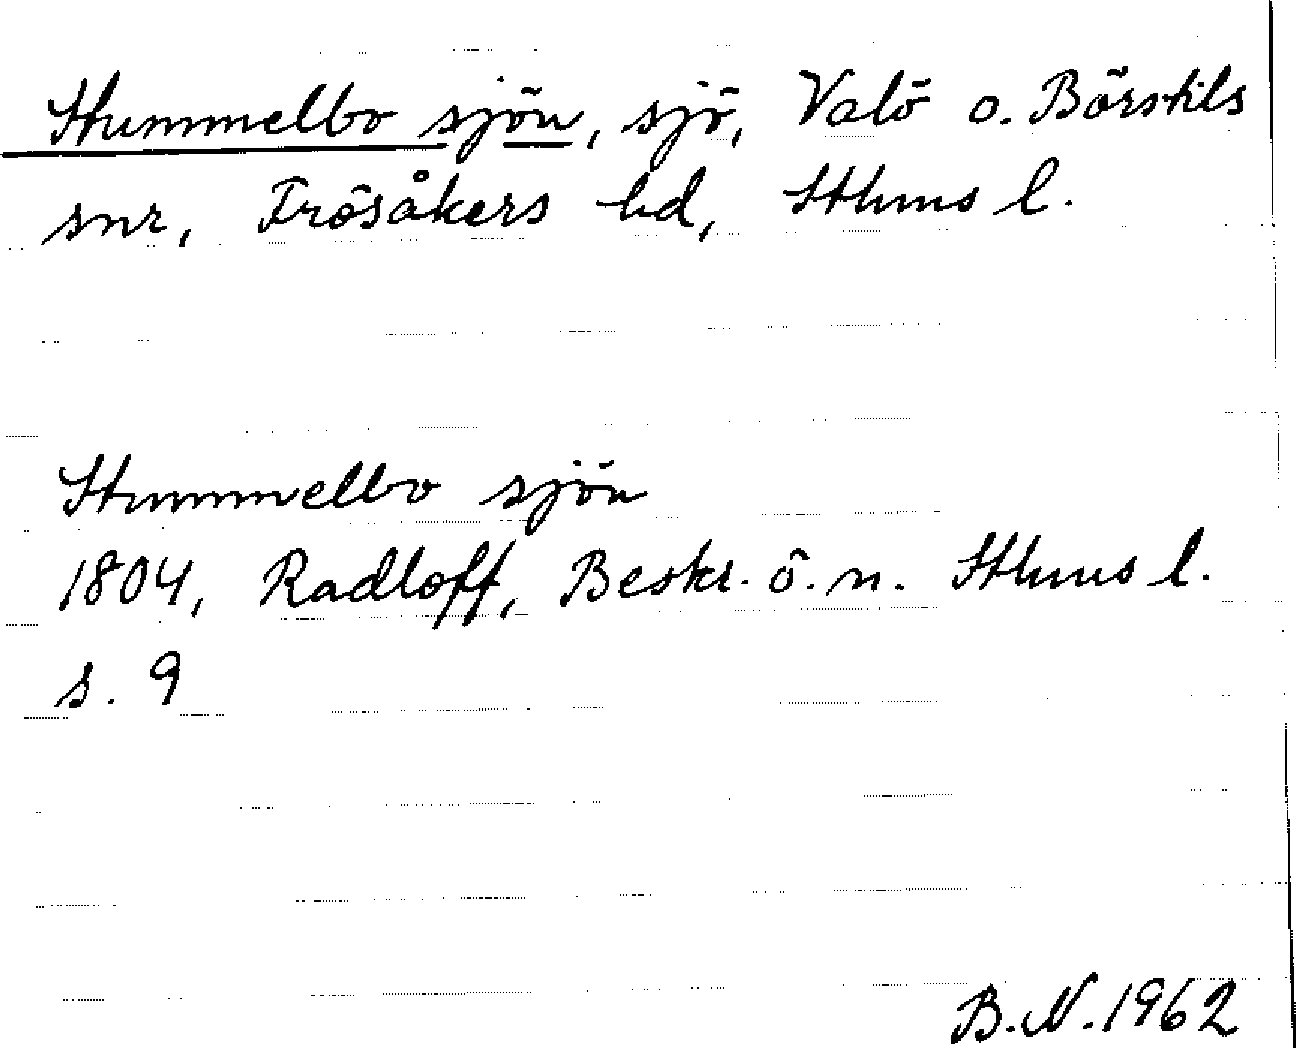 Hummelbo sjön, sjö, Valö o. Börstils
snr, Frösåkers hd, Sthms l.
Hummelbo sjön
1804, Radloff, Beskr. ö. n. Sthms l.
s. 9
B.N. 1962